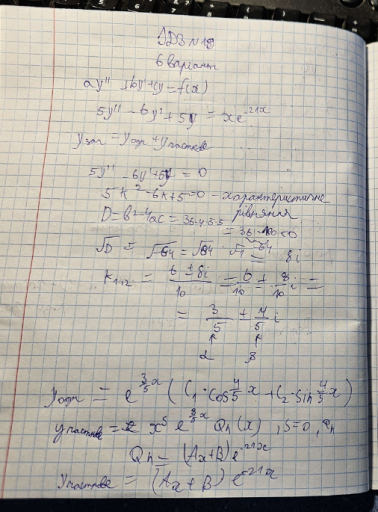 ІДЗ №19
6 варіант
ay'' + by' + cy = f(x)
5y'' - 6y' + 5y = xe^-21x
y заг = y одн + y частков
5y'' - 6y' + 5y = 0
5k² - 6k + 5 = 0 - характеристичне
рівняння
D = b² - 4ac = 36 - 4·5·5
= 36 - 100 < 0
√D = √-64 = √64 √-1 = 8i
k₁,₂ = 6 ± 8i / 10 = 6/10 ± 8/10 i =
= 3/5 ± 4/5 i
α β
y одн = e^3/5x (C₁·cos 4/5 x + C₂·sin 4/5 x)
y частков = x^s e^ Qn(x), S=0,
Qn = (Ax+B) e^-21x
y частков = (Ax+B) e^-21x